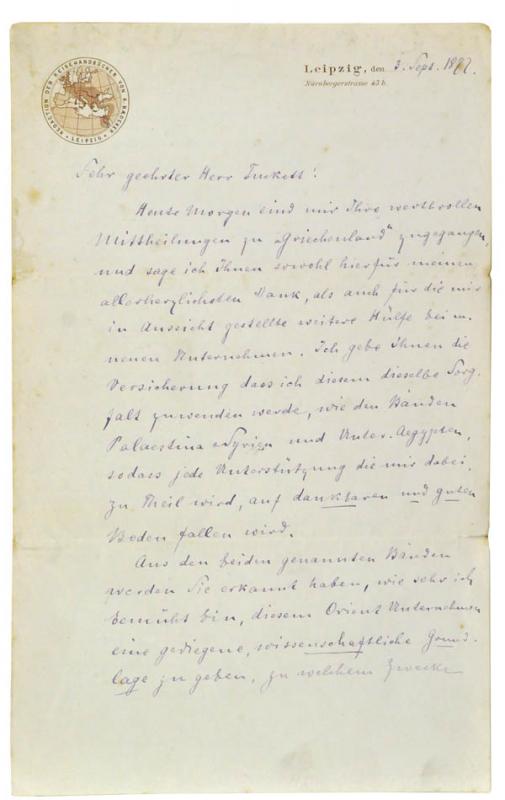 REDAKTION DER REISEHANDBÜCHER VON K. BÆDEKER
• LEIPZIG •
Leipzig, den 3. Sept. 1882.
Nürnbergerstrasse 43 b.
Sehr geehrter Herr Tuckett!
Heute Morgen sind mir Ihre wertvollen
Mittheilungen zu „Griechenland" zugegangen,
und sage ich Ihnen sowohl hierfür meinen
allerherzlichsten Dank, als auch für die mir
in Aussicht gestellte weitere Hülfe bei m.
neuen Unternehmen. Ich gebe Ihnen die
Versicherung dass ich diesem dieselbe Sorg-
falt zuwenden werde, wie den Bänden
Palaestina Syrien und Unter-Aegypten,
sodass jede Unterstützung die mir dabei
zu Theil wird, auf dankbaren und guten
Boden fallen wird.
Aus den beiden genannten Bänden
werden Sie erkannt haben, wie sehr ich
bemüht bin, diesem Orient Unternehmen
eine gediegene, wissenschaftliche Grund-
lage zu geben, zu welchem Zwecke